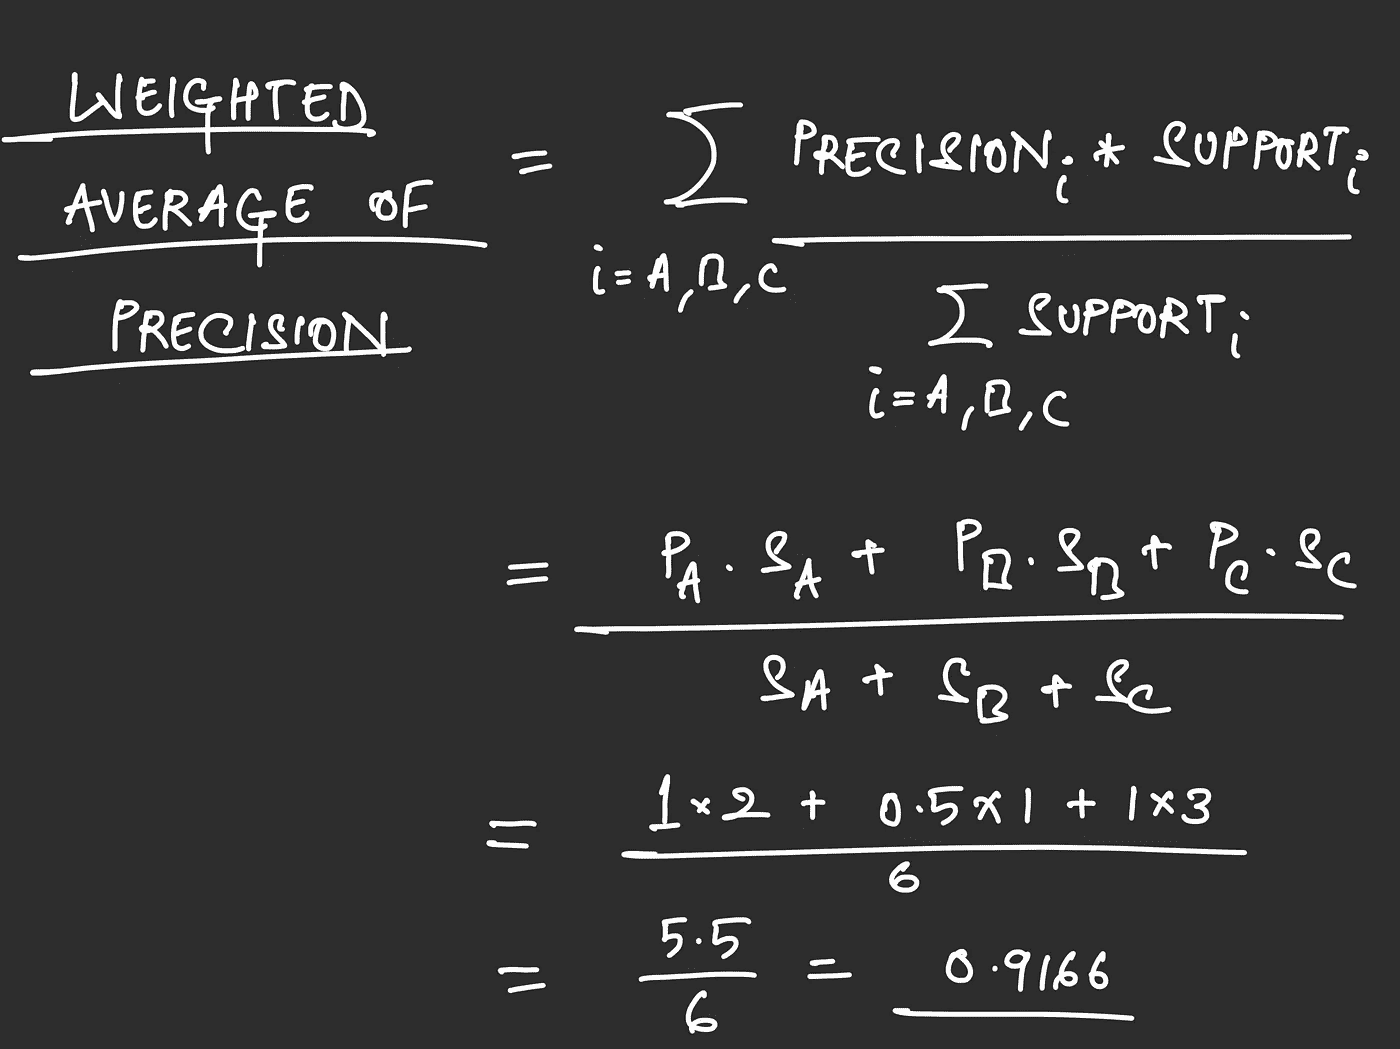 WEIGHTED
AVERAGE OF
PRECISION
= ∑ PRECISIONᵢ * SUPPORTᵢ
i=A,B,C
∑ SUPPORTᵢ
i=A,B,C
= P_A · S_A + P_B · S_B + P_C · S_C
S_A + S_B + S_C
= 1×2 + 0.5×1 + 1×3
6
= 5.5 = 0.9166
6